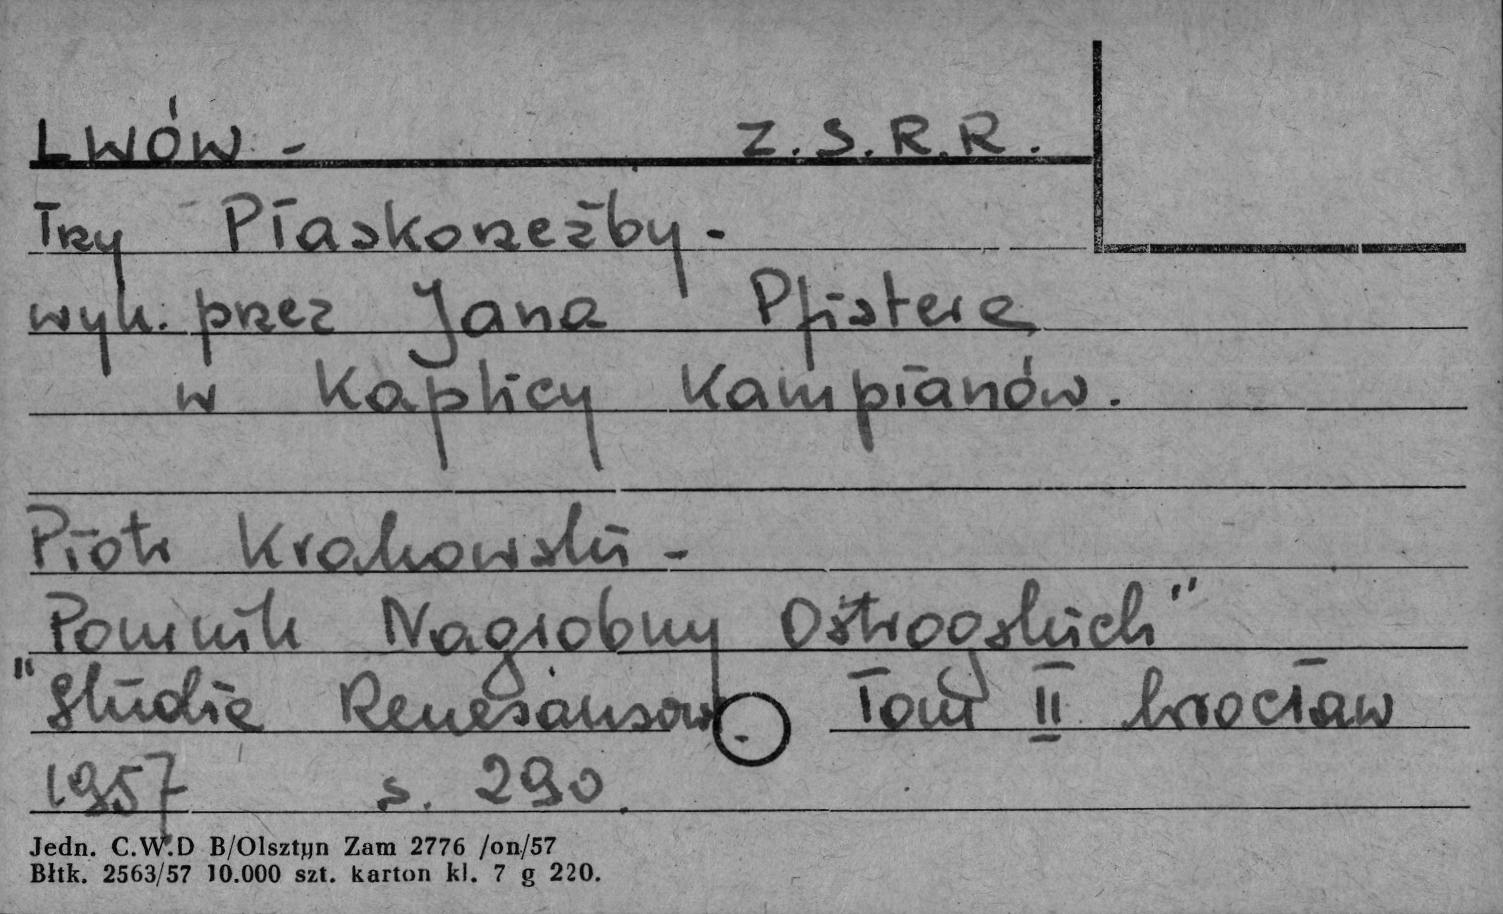 LWÓW - Z.S.R.R.
Trzy Płaskorzeźby -
wyk. przez Jana Pfistera
w Kaplicy Kampianów.
Piotr Krakowski -
Pomnik Nagrobny Ostrogskich"
"Studia Renesansow. Tom II Wrocław
1957 s. 290.
Jedn. C.W.D B/Olsztyn Zam 2776 /on/57
Błtk. 2563/57 10.000 szt. karton kl. 7 g 220.